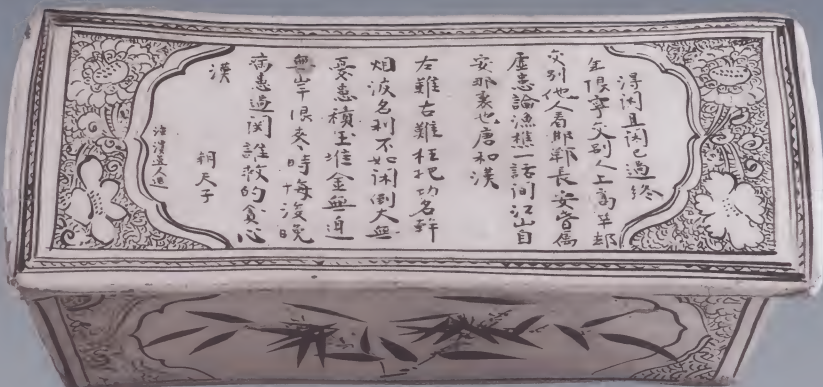 淂闲且闲已過終
年限寧交别人上高竿却
交别他人看邯鄲長安皆属
虚患論漁樵一話间江山自
安那裏也唐和漢
左難右難枉把功名幹
烟波名利不如闲倒大無
憂患積玉堆金無边
無岸限来時悔後晚
病患過関誰救的貪心
漢
朝天子
漳濱逸人造